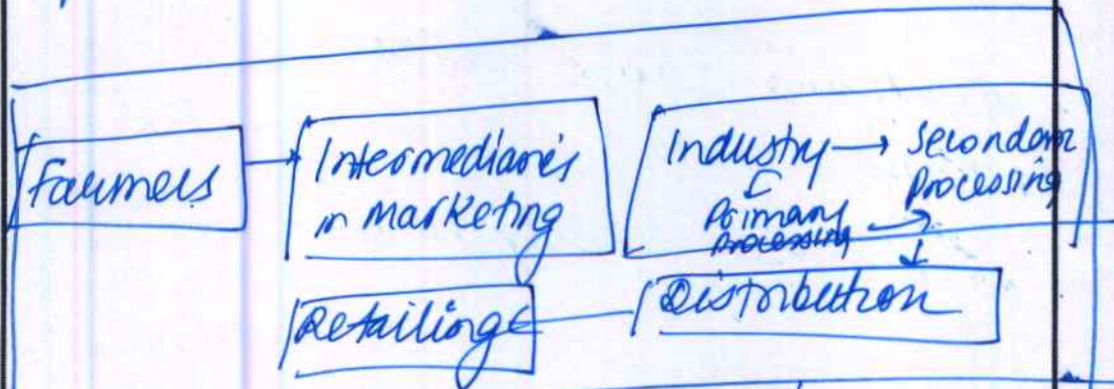 Farmers
Intermediaries
in marketing
Industry → Secondary
Processing
Primary
Processing
Distribution
Retailing